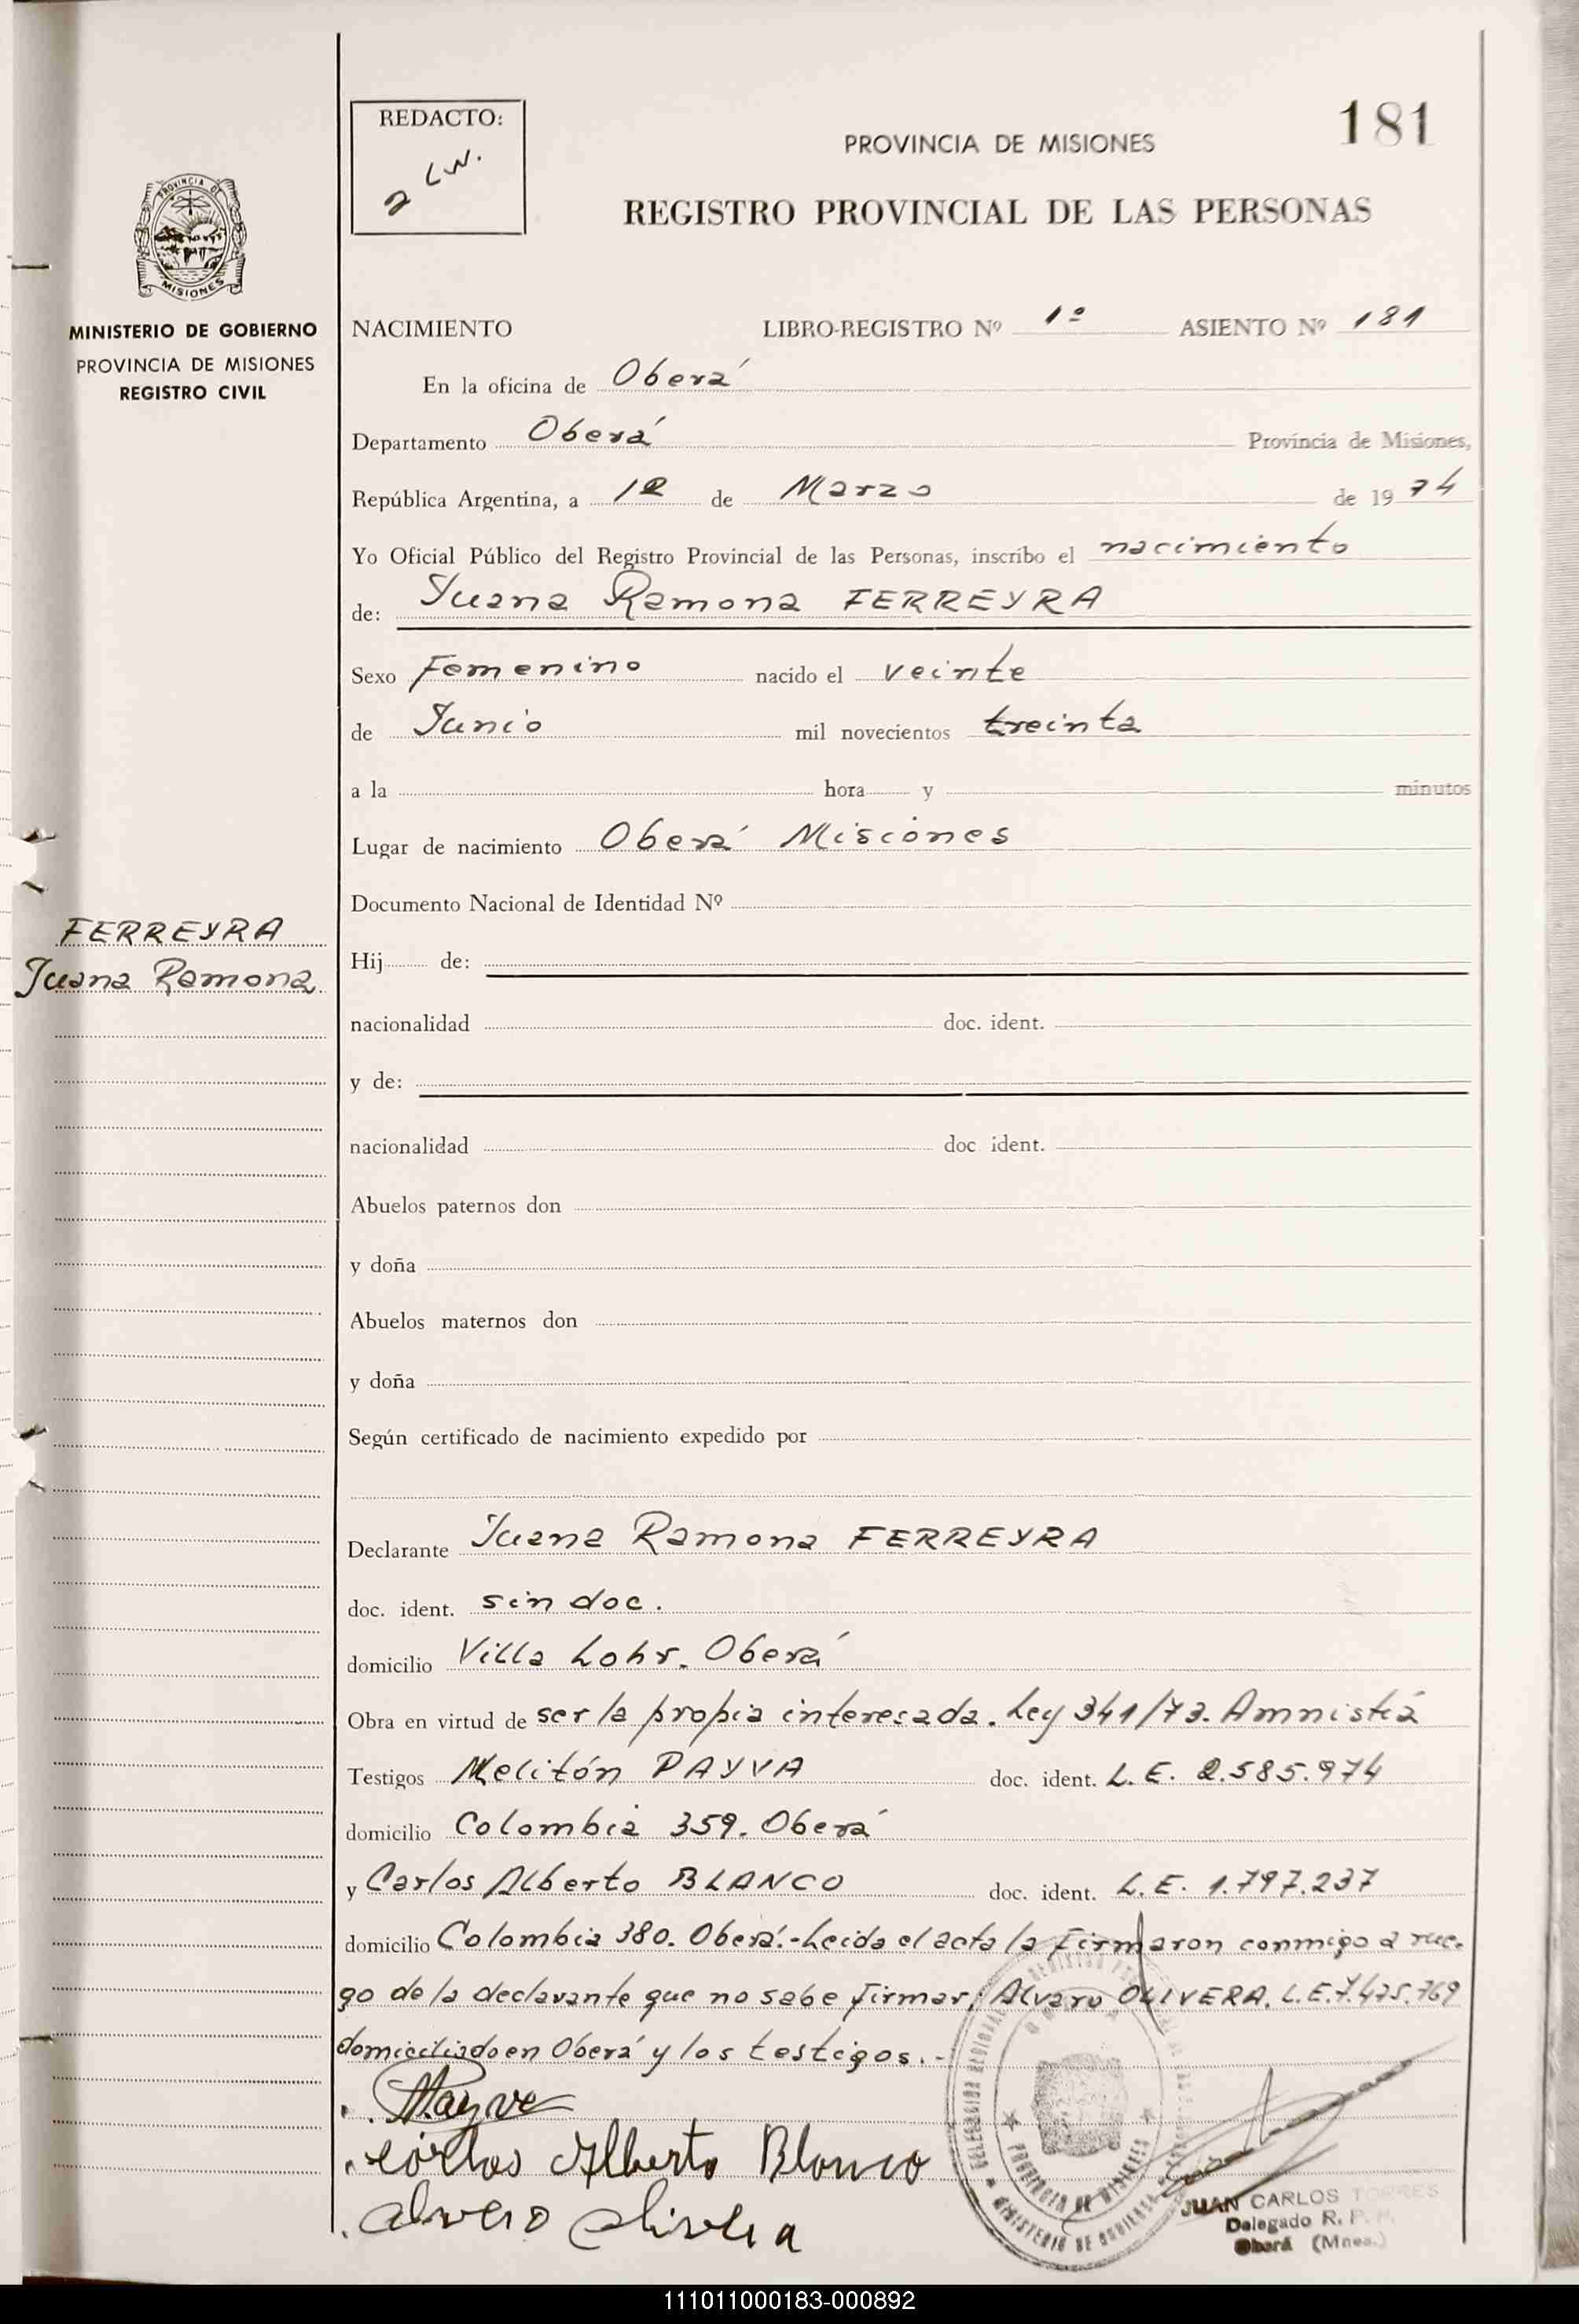 REDACTO:
PROVINCIA DE MISIONES
181
REGISTRO PROVINCIAL DE LAS PERSONAS
PROVINCIA DE
MISIONES
MINISTERIO DE GOBIERNO
PROVINCIA DE MISIONES
REGISTRO CIVIL
NACIMIENTO LIBRO-REGISTRO Nº 1º ASIENTO Nº 181
En la oficina de Oberá
Departamento Oberá Provincia de Misiones,
República Argentina, a 12 de Marzo de 1974
Yo Oficial Público del Registro Provincial de las Personas, inscribo el nacimiento
de: Juana Ramona FERREYRA
Sexo Femenino nacido el veinte
de Junio mil novecientos treinta
a la hora y minutos
Lugar de nacimiento Oberá Misiones
Documento Nacional de Identidad Nº
FERREYRA
Juana Ramona
Hij de:
nacionalidad doc. ident.
y de:
nacionalidad doc ident.
Abuelos paternos don
y doña
Abuelos maternos don
y doña
Según certificado de nacimiento expedido por
Declarante Juana Ramona FERREYRA
doc. ident. sin doc.
domicilio Villa Lohr. Oberá
Obra en virtud de ser la propia interesada. Ley 341/73. Amnistiá
Testigos Melitón PAYVA doc. ident. L. E. 2.585.974
domicilio Colombia 359. Oberá
y Carlos Alberto BLANCO doc. ident. L. E. 1.797.237
domicilio Colombia 380. Oberá.-Leida el acta la firmaron conmigo a rue-
go de la declarante que no sabe firmar, Alvaro OLIVERA. L.E.7.475.769
domiciliado en Oberá y los testigos.-
Carlos Alberto Blanco
Alvero Olivera
PROVINCIA DE MISIONES
MINISTERIO DE GOBIERNO
JUAN CARLOS TORRES
Delegado R. P. P.
Oberá (Mnes.)
111011000183-000892